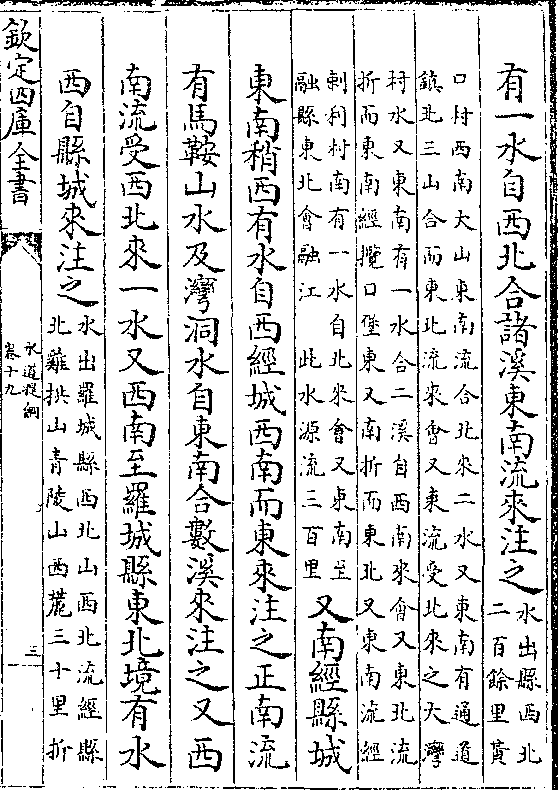 有一水自西北合諸溪東南流來注之水出縣西北
二百餘里黃
口村西南大山東南流合北來二水又東南有通道
鎮北三山合而東北流來會又東流受北來之大灣
村水又東南有一水合二溪自西南來會又東北流
折而東南經攬口堡東又南折而東北又東南流經
剌利村南有一水自北來會又東南至
融縣東北會融江 此水源流三百里
又南經縣城
東南稍西有水自西經城西南而東來注之正南流
有馬鞍山水及灣洞水自東南合數溪來注之又西
南流受西北來一水又西南至羅城縣東北境有水
西自縣城來注之水出羅城縣西北山西北流經縣
北雞拱山青陵山西麓三十里折
欽定四庫全書
水道提綱
卷十九
三